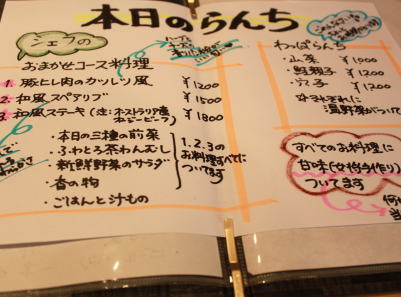 本日のらんち
シェフの
おまかせコース料理
1. 豚ヒレ肉のカツレツ風 ¥1200
2. 和風スペアリブ ¥1500
3. 和風ステーキ ¥1800
・本日の三種の前菜
・ふわとろ茶わんむし
・新鮮野菜のサラダ
・香の物
・ごはんと汁もの
1.2.3の
お料理すべてに
ついてます
わっぱらんち
・山菜 ¥1000
・鮭親子 ¥1200
・穴子 ¥1200
温野菜がついて
すべてのお料理に
甘味(女将手作り)
ついてます